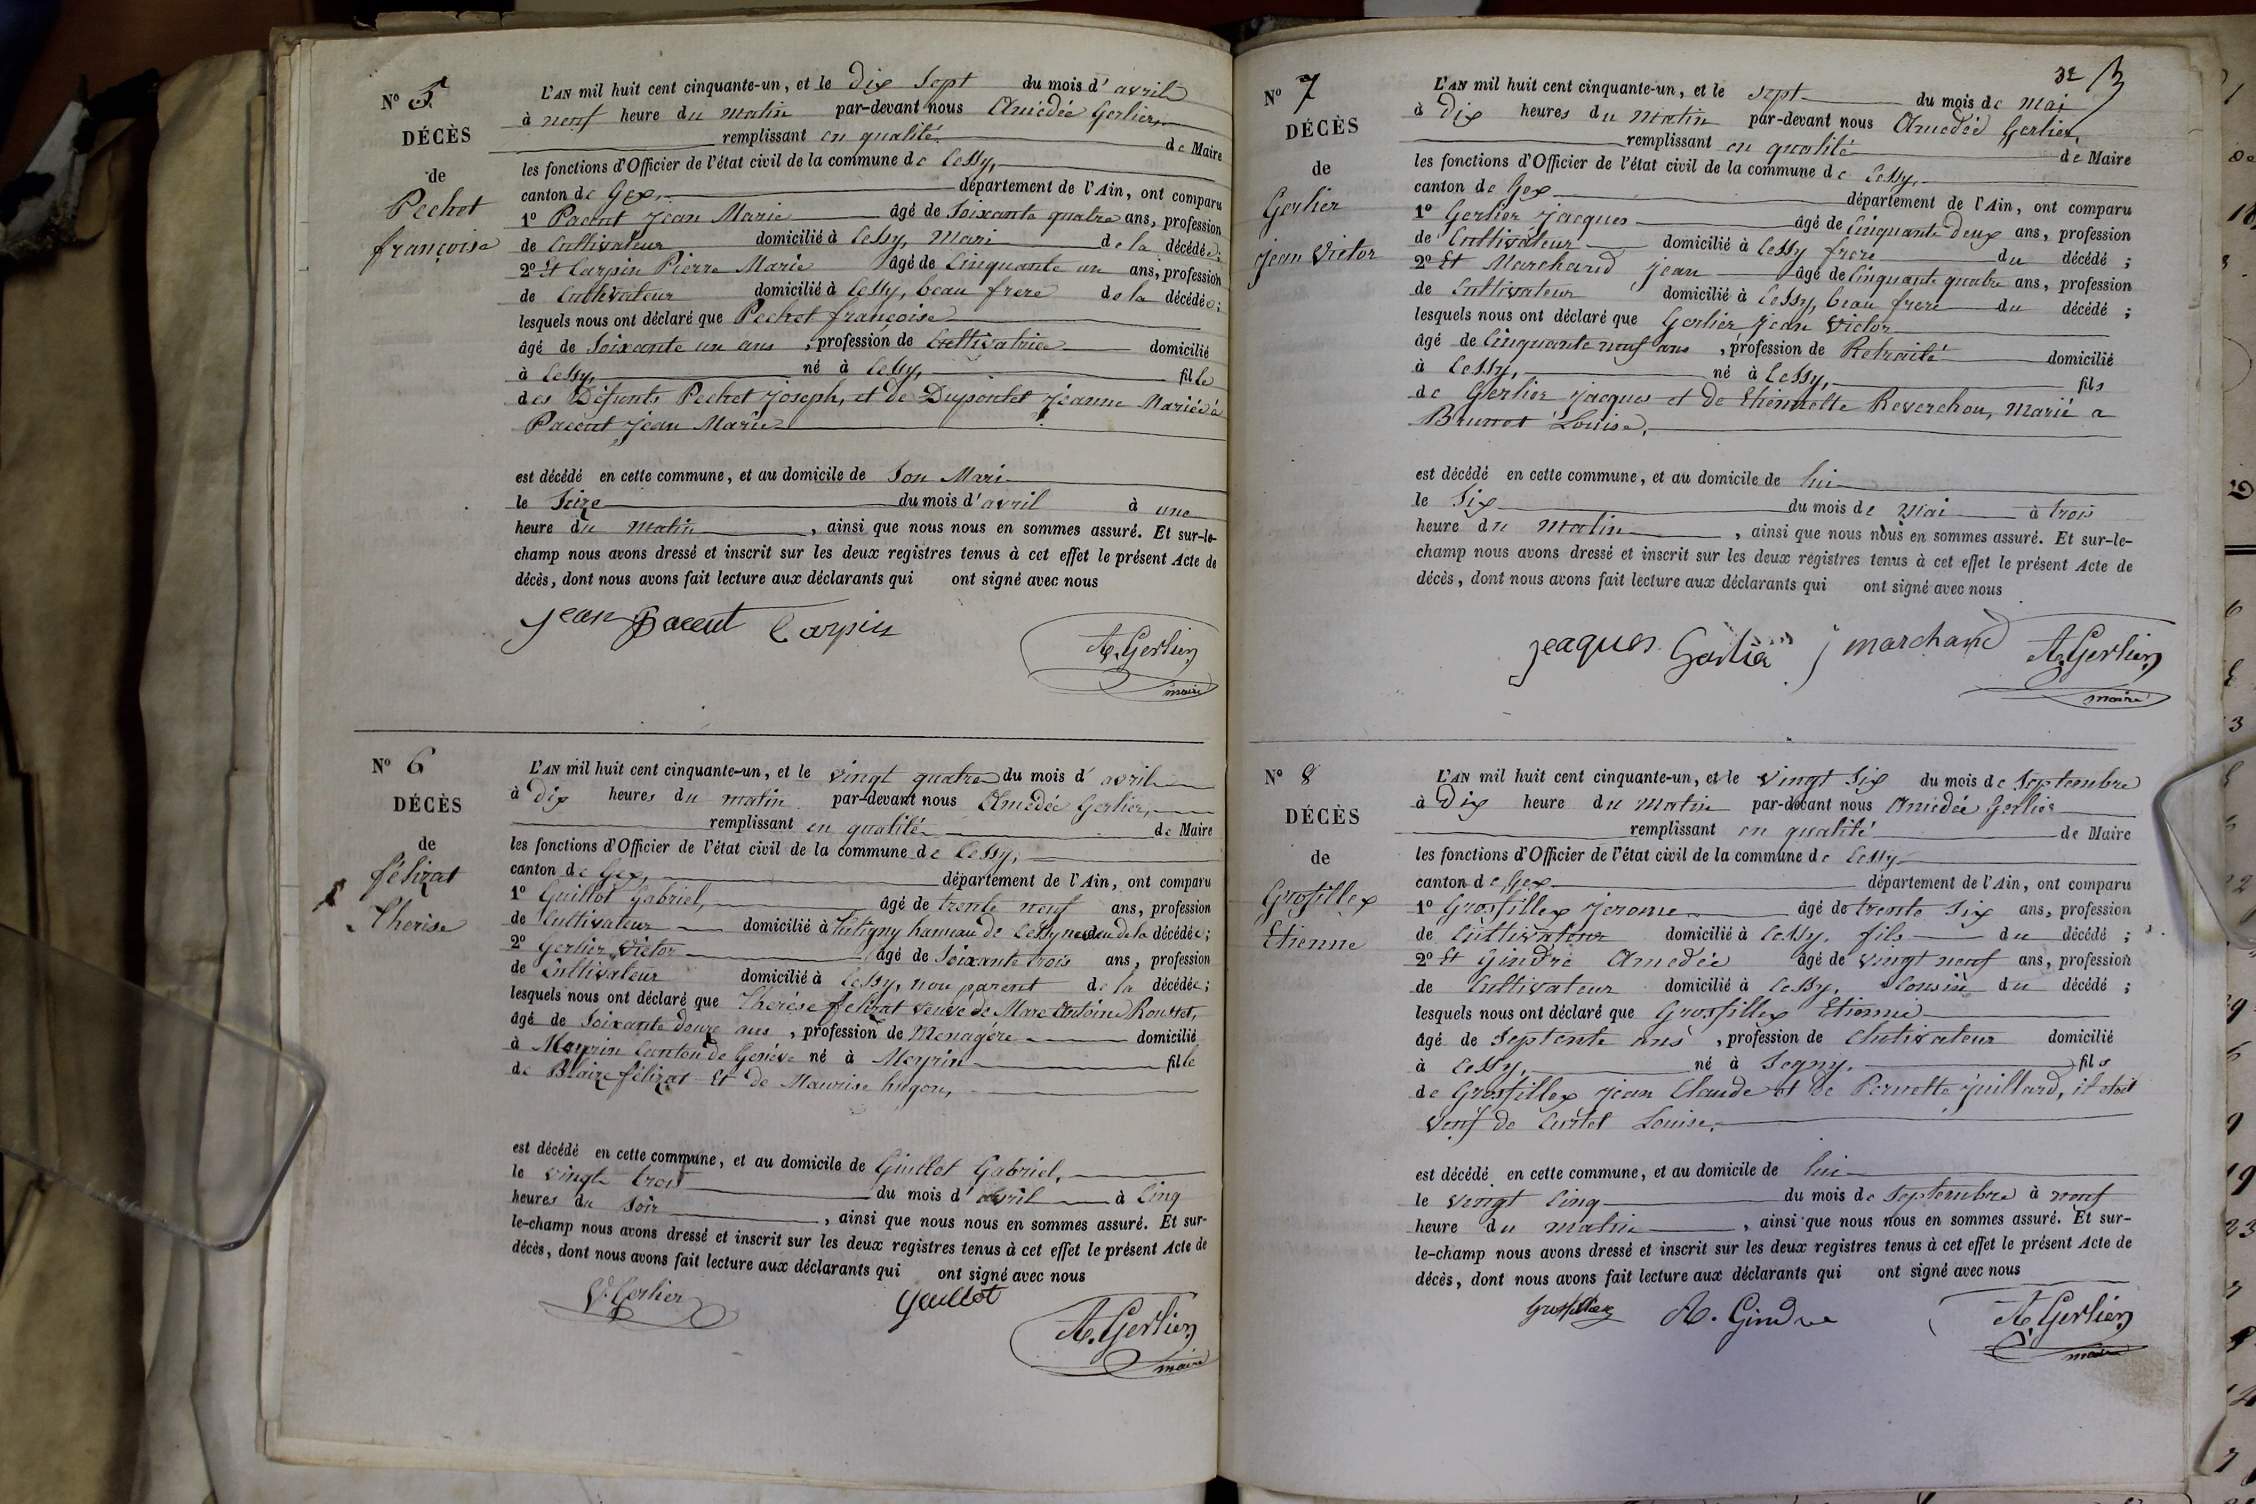 N° 5
DÉCÈS
de
Pechot
françoise
L'AN mil huit cent cinquante-un, et le dix sept du mois d'avril
à neuf heure du matin par-devant nous Amédée Gerlier
remplissant en qualité de Maire
les fonctions d'Officier de l'état civil de la commune de Cessy,
canton de Gex, département de l'Ain, ont comparu
1° Pacout Jean Marie âgé de Soixante quatre ans, profession
de Cultivateur domicilié à Cessy, Mari de la décédée;
2° Et Carpin Pierre Marie âgé de Cinquante un ans, profession
de Cultivateur domicilié à Cessy, beau frere de la décédée;
lesquels nous ont déclaré que Pechot françoise
âgé de Soixante un ans, profession de Cultivatrice domicilié
à Cessy, né à Cessy, fille
des Défunts Pechet Joseph, et de Dupontet Jeanne Mariée à
Pacout Jean Marie
est décédé en cette commune, et au domicile de Son Mari
le Seize du mois d'avril à une
heure du matin, ainsi que nous nous en sommes assuré. Et sur-le-
champ nous avons dressé et inscrit sur les deux registres tenus à cet effet le présent Acte de
décès, dont nous avons fait lecture aux déclarants qui ont signé avec nous
Jean Pacout Carpin
A. Gerlier
maire
N° 6
DÉCÈS
de
félizat
Therise
L'AN mil huit cent cinquante-un, et le vingt quatre du mois d'avril
à Dix heures du matin par-devant nous Amédée Gerlier,
remplissant en qualité de Maire
les fonctions d'Officier de l'état civil de la commune de Cessy,
canton de Gex, département de l'Ain, ont comparu
1° Guillot Gabriel, âgé de trente neuf ans, profession
de Cultivateur domicilié à Tutigny hameau de Cessy neveu de la décédée;
2° Gerlier Victor âgé de Soixante trois ans, profession
de Cultivateur domicilié à Cessy, non parent de la décédée;
lesquels nous ont déclaré que Therése félizat veuve de Marc Antoine Rousset,
âgé de Soixante douze ans, profession de Menagére domicilié
à Meyrin Canton de Genéve né à Meyrin fille
de Blaize félizat Et de Maurise hugon,
est décédé en cette commune, et au domicile de Guillot Gabriel,
le vingt trois du mois d'avril à Cinq
heures du Soir, ainsi que nous nous en sommes assuré. Et sur-
le-champ nous avons dressé et inscrit sur les deux registres tenus à cet effet le présent Acte de
décès, dont nous avons fait lecture aux déclarants qui ont signé avec nous
V. Gerlier Guillot
A. Gerlier
maire
32
N° 7
DÉCÈS
de
Gerlier
Jean Victor
L'AN mil huit cent cinquante-un, et le sept du mois de mai
à Dix heures du matin par-devant nous Amedée Gerlier,
remplissant en qualité de Maire
les fonctions d'Officier de l'état civil de la commune de Cessy,
canton de Gex département de l'Ain, ont comparu
1° Gerlier Jacques âgé de Cinquante Deux ans, profession
de Cultivateur domicilié à Cessy frere du décédé;
2° Et Marchand Jean âgé de Cinquante quatre ans, profession
de Cultivateur domicilié à Cessy, beau frere du décédé;
lesquels nous ont déclaré que Gerlier Jean Victor
âgé de Cinquante neuf ans, profession de Retraité domicilié
à Cessy, né à Cessy, fils
de Gerlier Jacques et de Etiennette Reverchon, Marié a
Brunet Louise,
est décédé en cette commune, et au domicile de lui
le Six du mois de Mai à trois
heure du matin, ainsi que nous nous en sommes assuré. Et sur-le-
champ nous avons dressé et inscrit sur les deux registres tenus à cet effet le présent Acte de
décès, dont nous avons fait lecture aux déclarants qui ont signé avec nous
Jeaques Gerlier J marchand A. Gerlier
maire
N° 8
DÉCÈS
de
Grosfillex
Etienne
L'AN mil huit cent cinquante-un, et le vingt Six du mois de Septembre
à Dix heure du Matin par-devant nous Amédée Gerlier
remplissant en qualité de Maire
les fonctions d'Officier de l'état civil de la commune de Cessy
canton de Gex département de l'Ain, ont comparu
1° Grosfillex Jerome âgé de trente Six ans, profession
de Cultivateur domicilié à Cessy, fils du décédé;
2° Et Gindre Amedée âgé de vingt neuf ans, profession
de Cultivateur domicilié à Cessy, Cousin du décédé;
lesquels nous ont déclaré que Grosfillex Etienne
âgé de Septente ans, profession de Chutivateur domicilié
à Cessy, né à Segny, fils
de Grosfillex Jean Claude et de Pernette Juillard, il étoit
veuf de Curtet Louise,
est décédé en cette commune, et au domicile de lui
le vingt Cinq du mois de Septembre à neuf
heure du matin, ainsi que nous nous en sommes assuré. Et sur-
le-champ nous avons dressé et inscrit sur les deux registres tenus à cet effet le présent Acte de
décès, dont nous avons fait lecture aux déclarants qui ont signé avec nous
Grosfillex A. Gindre A. Gerlier
maire